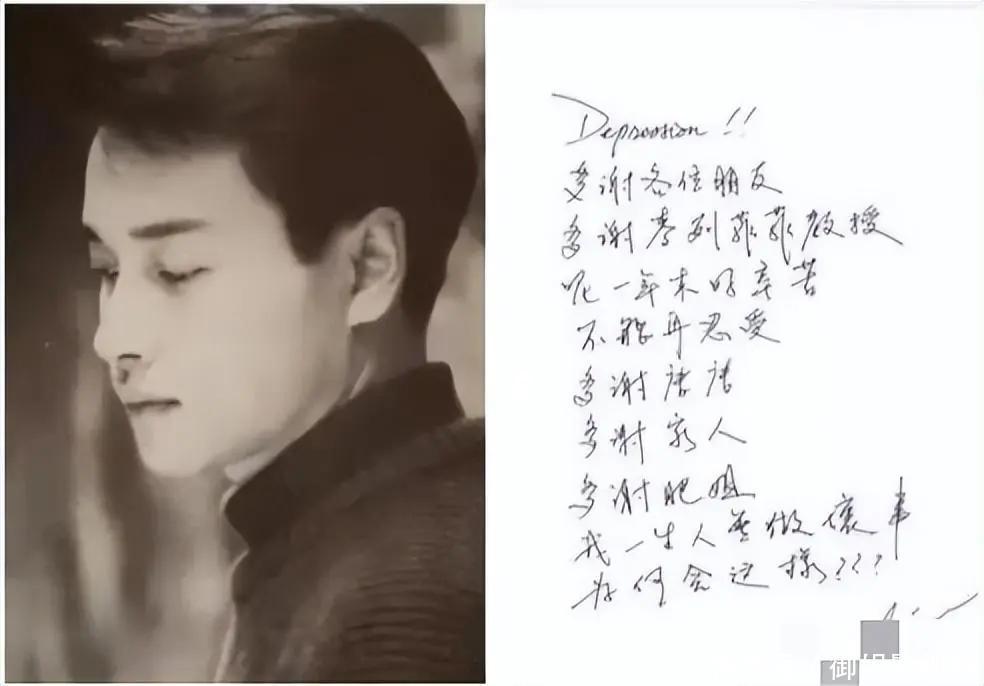 Depression!!
多谢各位朋友
多谢李列菲菲教授
呢一年来好辛苦
不能再忍受
多谢唐唐
多谢家人
多谢肥姐
我一生人无做坏事
为何会这样???
御姐